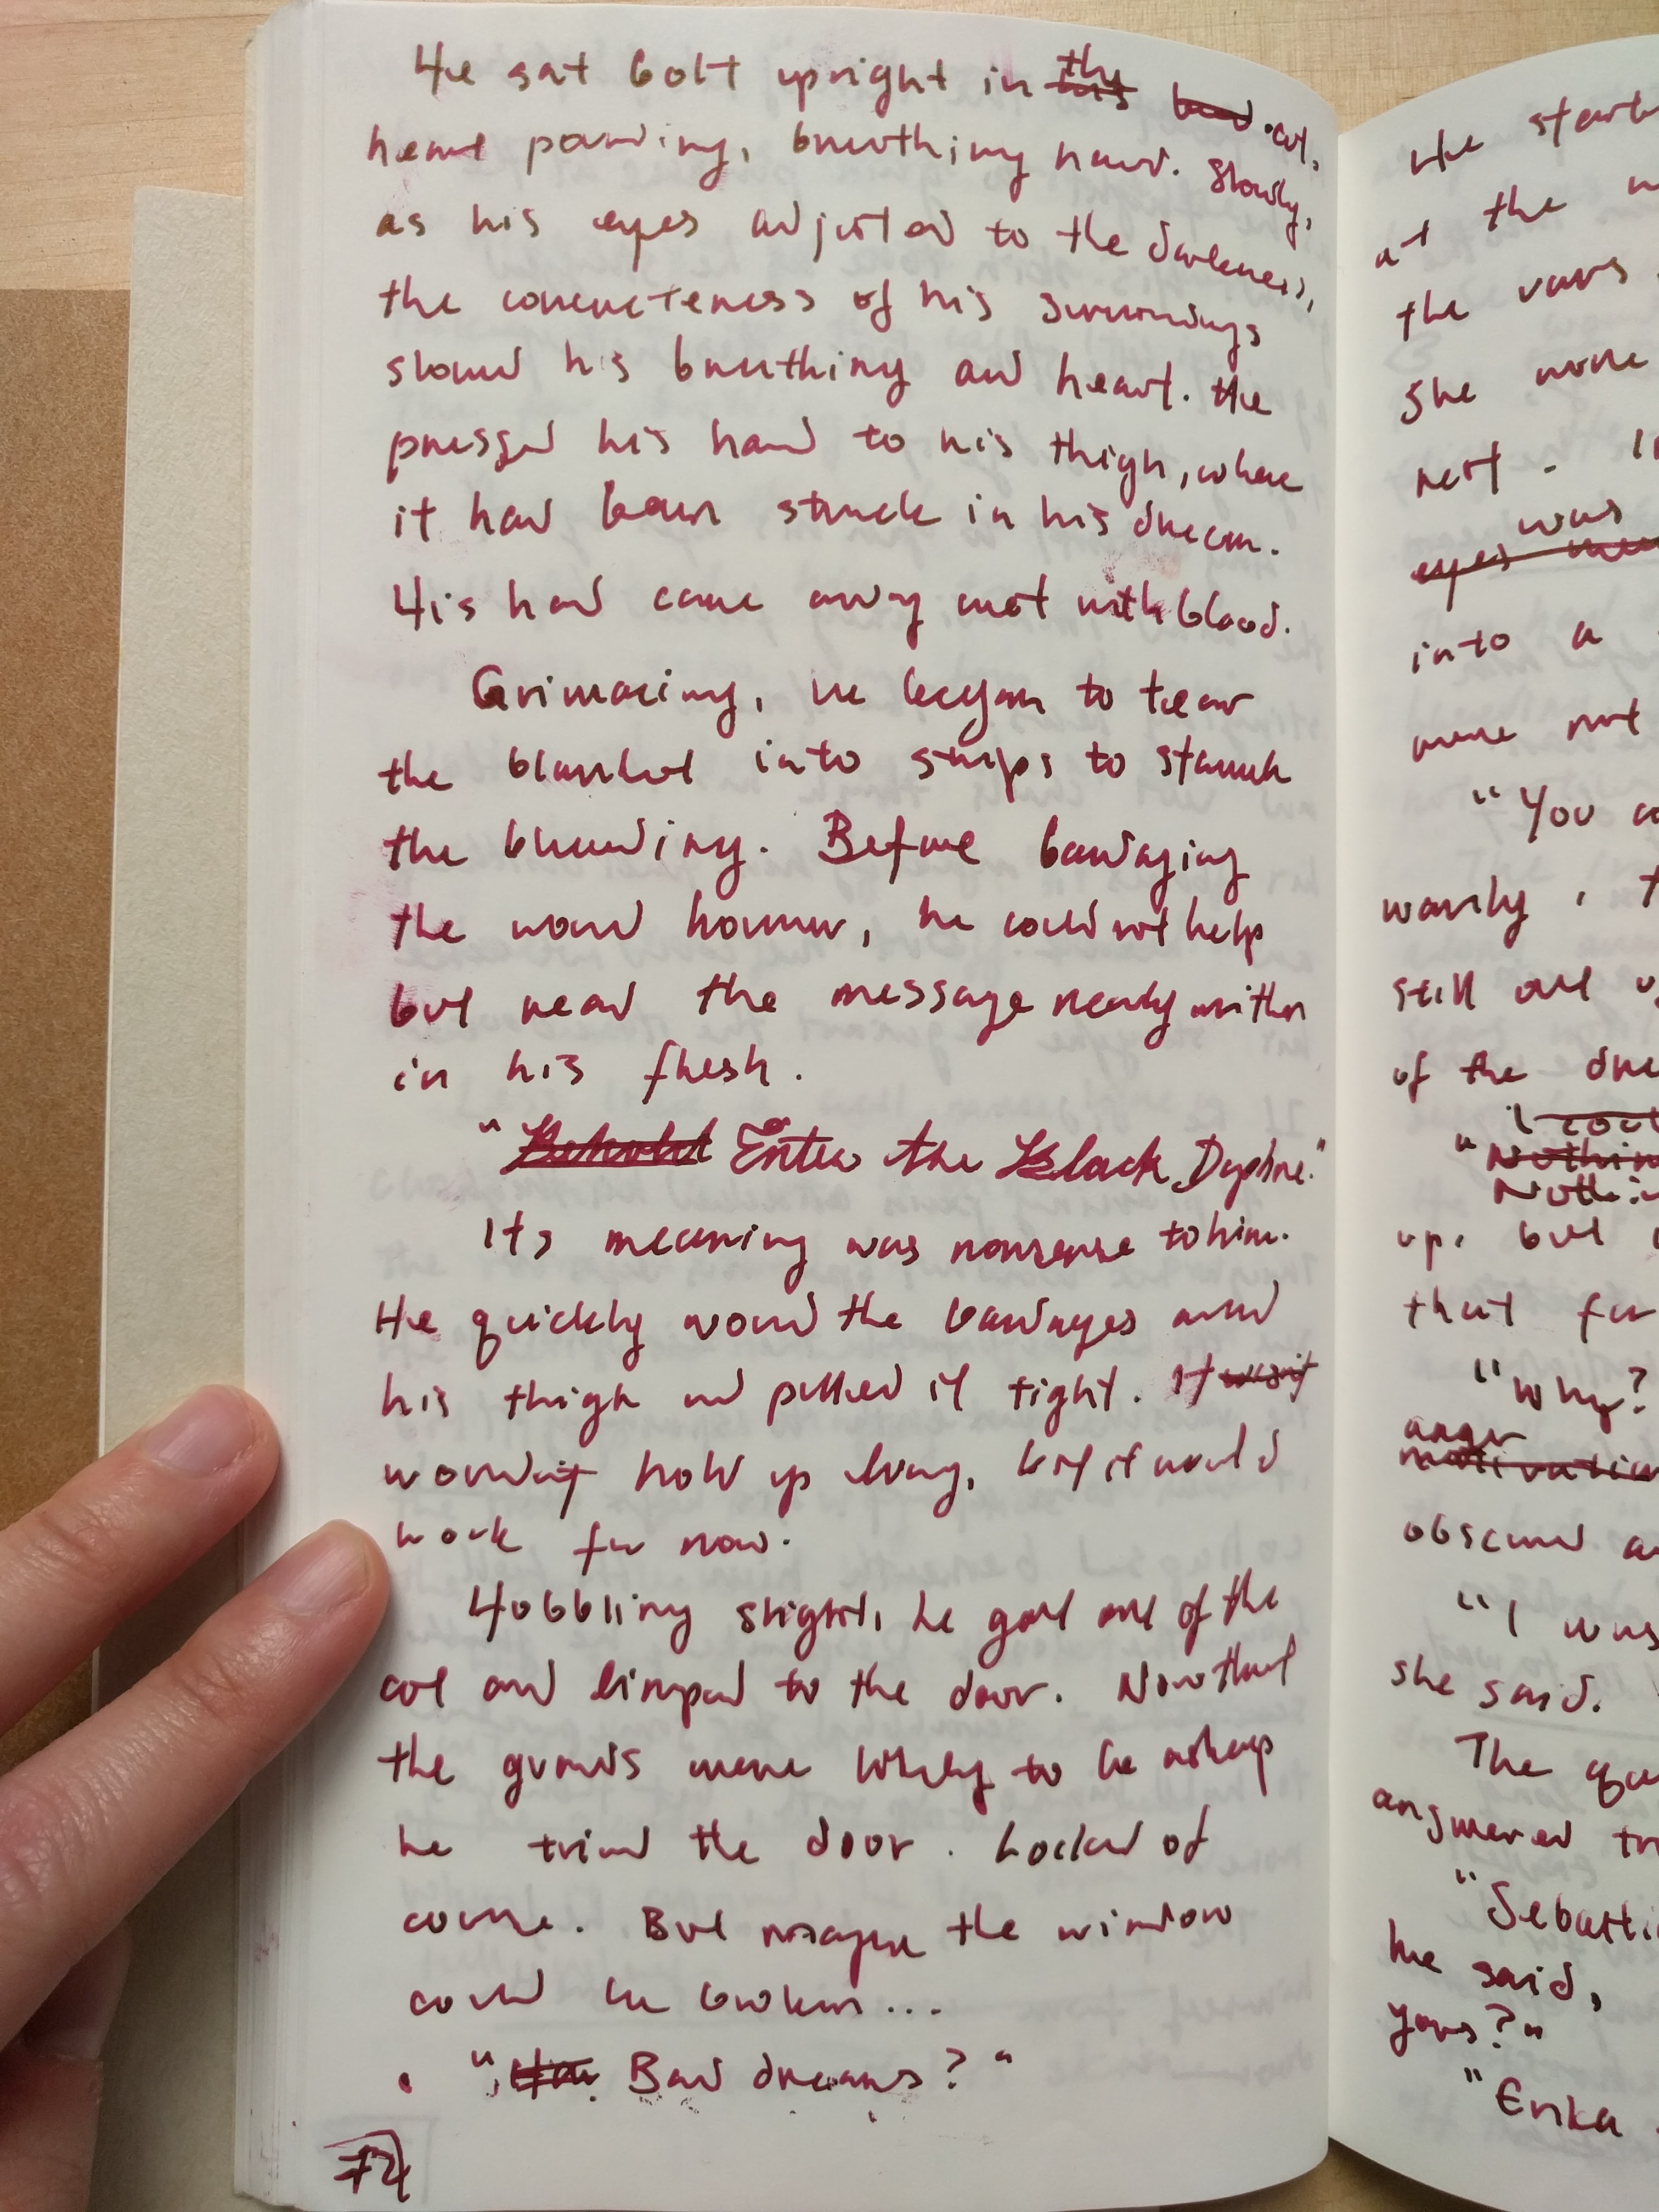 He sat bolt upright in the cot,
heart pounding, breathing hard. Slowly,
as his eyes adjusted to the darkness,
the concreteness of his surroundings
slowed his breathing and heart. He
pressed his hand to his thigh, where
it had been struck in his dream.
His hand came away wet with blood.
Grimacing, he began to tear
the blanket into strips to staunch
the bleeding. Before bandaging
the wound however, he could not help
but read the message neatly written
in his flesh.
"Behold Enter the Black Daphne."
Its meaning was nonsense to him.
He quickly wound the bandages around
his thigh and pulled it tight. It wasn't
wouldn't hold up long, but it would
work for now.
Hobbling slightly, he got out of the
cot and limped to the door. Now that
the guards were likely to be asleep
he tried the door. Locked of
course. But maybe the window
could be broken...
" Bad dreams?"
74
He
at the
the vans
She wore
next. 
was
eyes
into a
were not
"You
warily,
still
of the
"Nothin
Nothin
up, but
that for
"Why?
anger
motivation
obscured
"I was
she said.
The
answered
"Sebasti
he said,
yours?"
"Erika